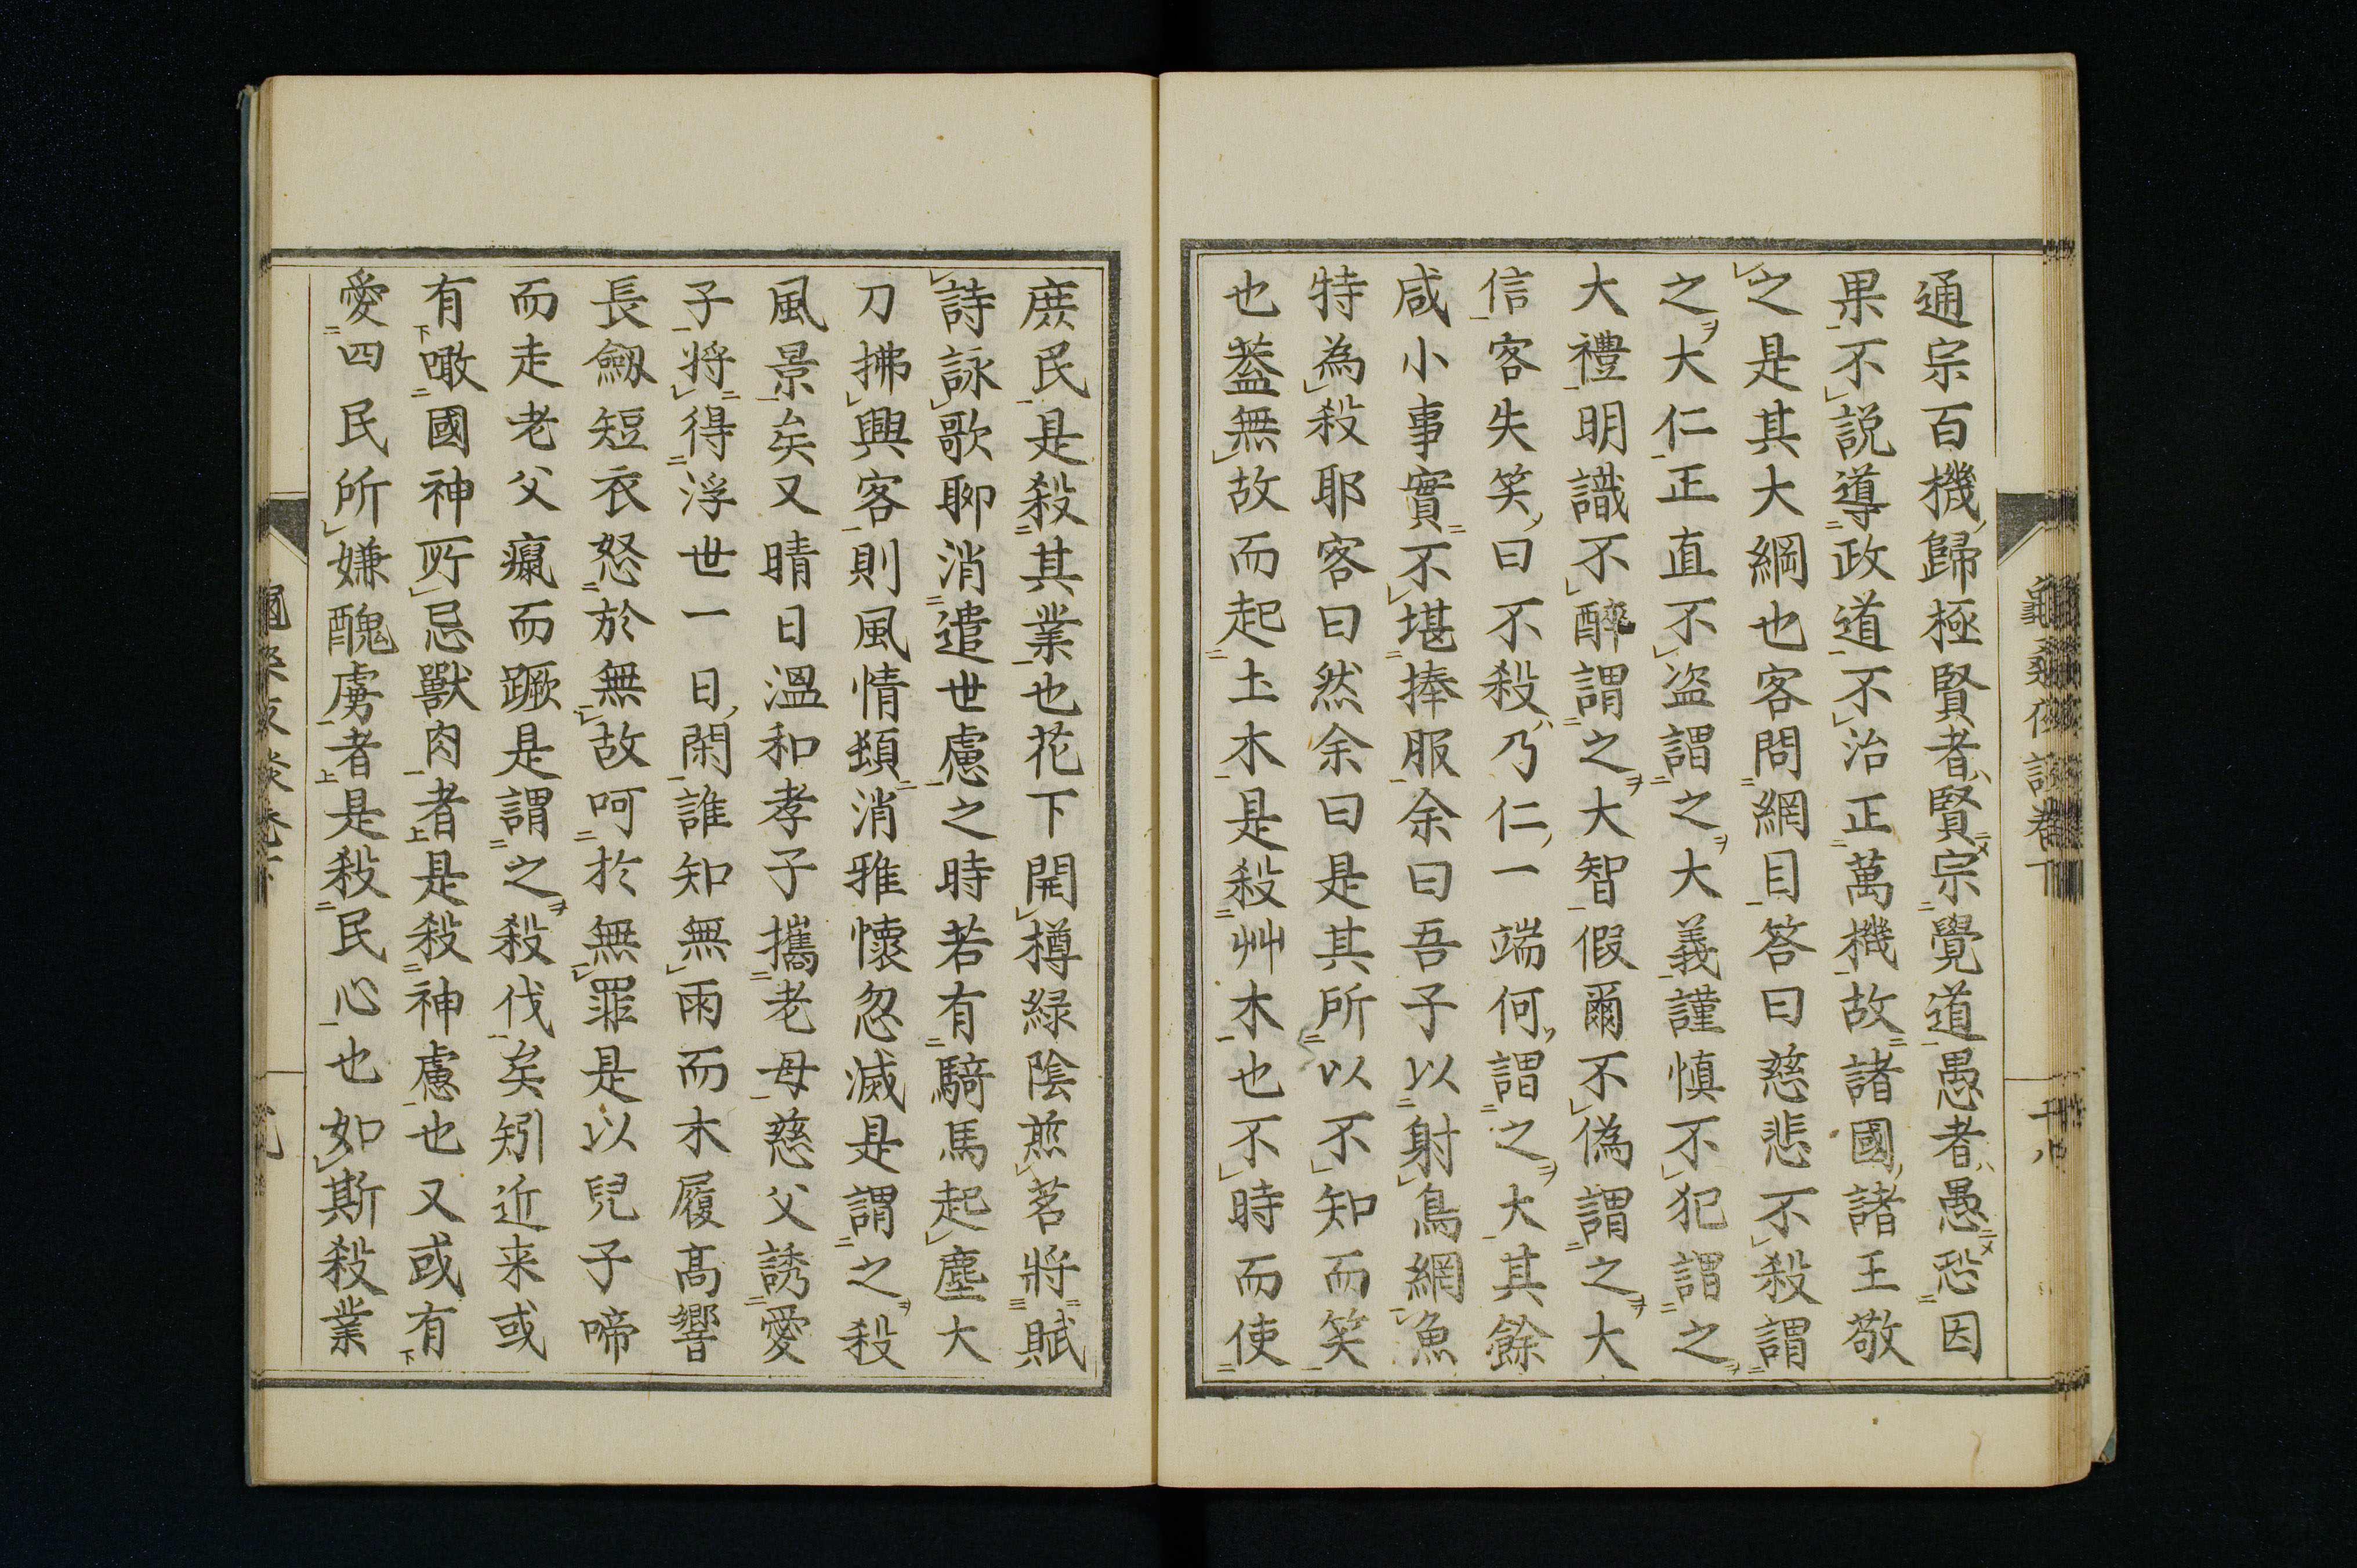 通宗百機歸極賢者賢宗覺道愚者愚恐因
果不説導政道不治正萬機故諸國諸王敬
之是其大綱也客問網目答曰慈悲不殺謂
之大仁正直不盗謂之大義謹慎不犯謂之
大禮明識不醉謂之大智假爾不偽謂之大
信客失笑曰不殺乃仁一端何謂之大其餘
咸小事實不堪捧服余曰吾子以射鳥網魚
特為殺耶客曰然余曰是其所以不知而笑
也葢無故而起土木是殺艸木也不時而使
庶民是殺其業也花下開樽緑陰煎茗將賦
詩詠歌聊消遣世慮之時若有騎馬起塵大
刀拂興客則風情頽消雅懷忽滅是謂之殺
風景矣又晴日溫和孝子攜老母慈父誘愛
子將得浮世一日閑誰知無雨而木履高響
長劔短衣怒於無故呵於無罪是以兒子啼
而走老父瘨而蹶是謂之殺伐矣矧近来或
有噉國神所忌獸肉者是殺神慮也又或有
愛四民所嫌醜虜者是殺民心也如斯殺業